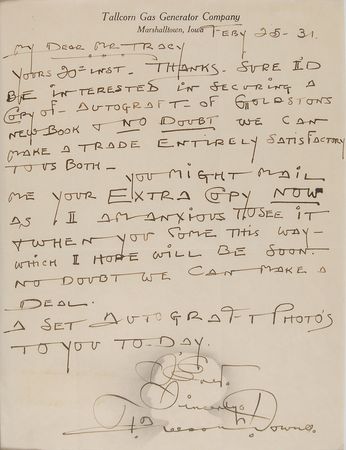 Tallcorn Gas Generator Company
Marshalltown, Iowa FEBY 28-31.
MY DEAR MR-TRACY
YOURS 20th INST. THANKS. SURE I'D
BE INTERESTED IN SECURING A
COPY OF-AUTOGRAFT-OF GOLDSTONS
NEW BOOK & NO DOUBT WE CAN
MAKE A TRADE ENTIRELY SATISFACTORY
TO US BOTH-
YOU MIGHT MAIL
ME YOUR EXTRA COPY NOW
AS I AM ANXIOUS TO SEE IT
& WHEN YOU COME THIS WAY-
WHICH I HOPE WILL BE SOON.
NO DOUBT WE CAN MAKE A
DEAL.
A SET AUTOGRAFT PHOTO'S
TO YOU TO-DAY.
Sincerely
Downs.